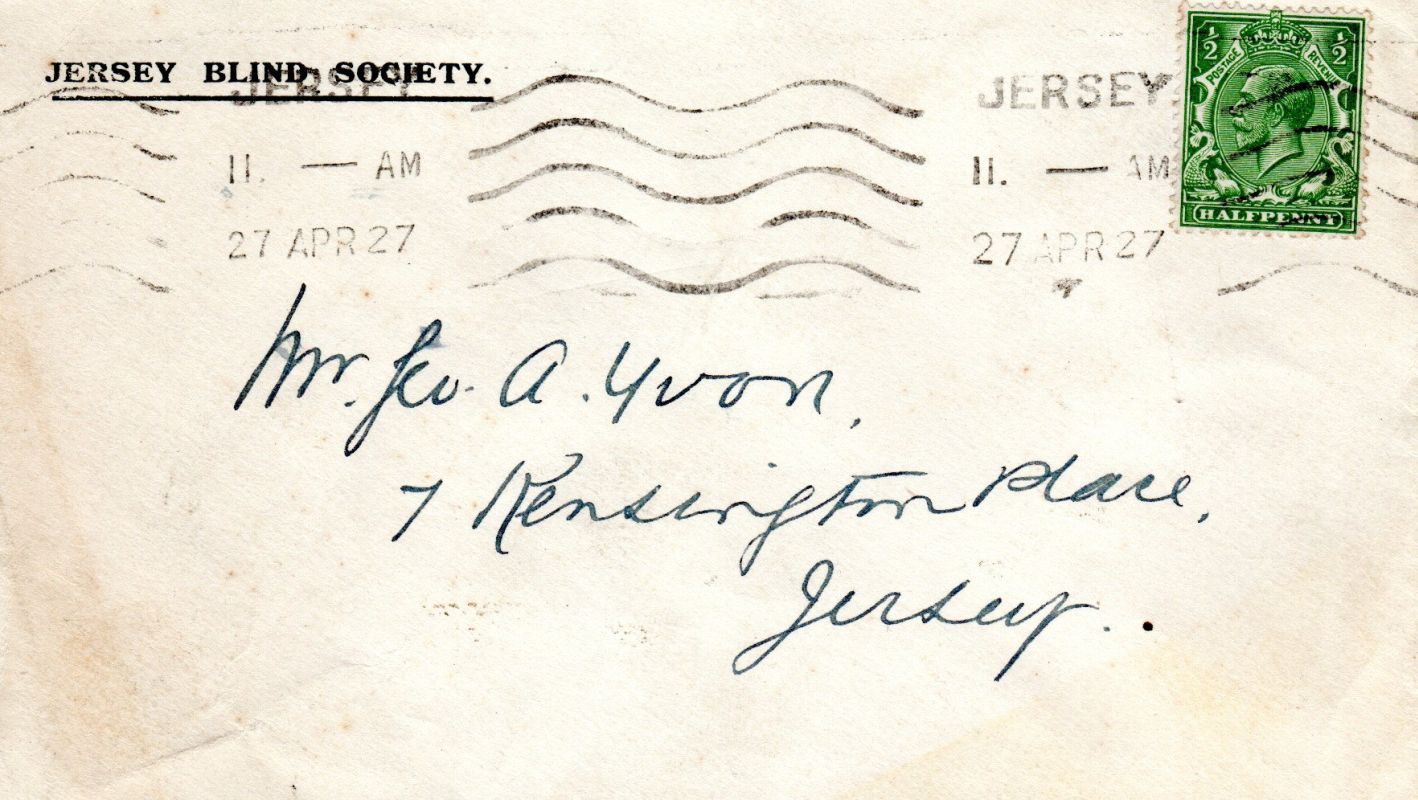 JERSEY BLIND SOCIETY.
JERSEY JERSEY
11. — AM 11. — AM
27 APR 27 27 APR 27
½ ½
POSTAGE REVENUE
HALFPENNY
Mr. Geo. A. Yvon,
7 Kensington Place,
Jersey.